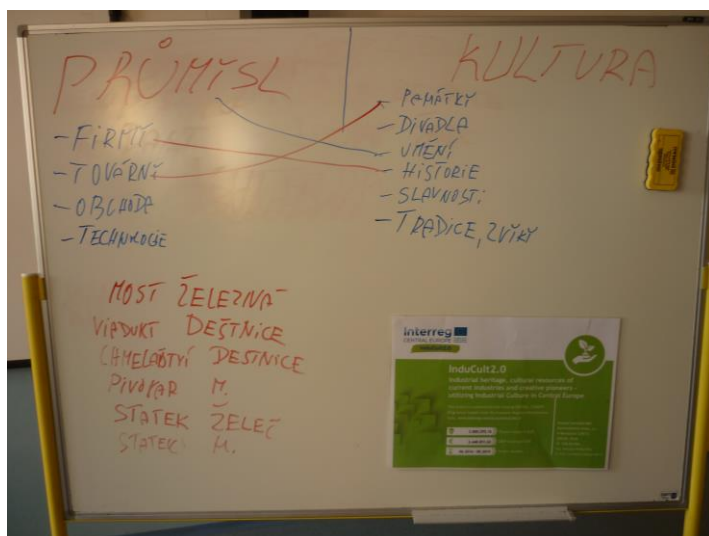 PRŮMÍSL
- FIRMY
- TOVÁRNÍ
- OBCHODA
- TECHNOLOGIE
KULTURA
- PAMÁTKY
- DIVADLA
- UMĚNÍ
- HISTORIE
- SLAVNOSTI
- TRADICE, ZVÍKY
MOST ŽELEZNÁ
VIADUKT DEŠTNICE
CHMELAŘTVÍ DESTNICE
PIVOVAR M.
STATEK ŽELEČ
STATEK M.
Interreg
CENTRAL EUROPE
InduCult2.0
Industrial heritage, cultural resources of
current industries and creative pioneers -
utilizing Industrial Culture in Central Europe